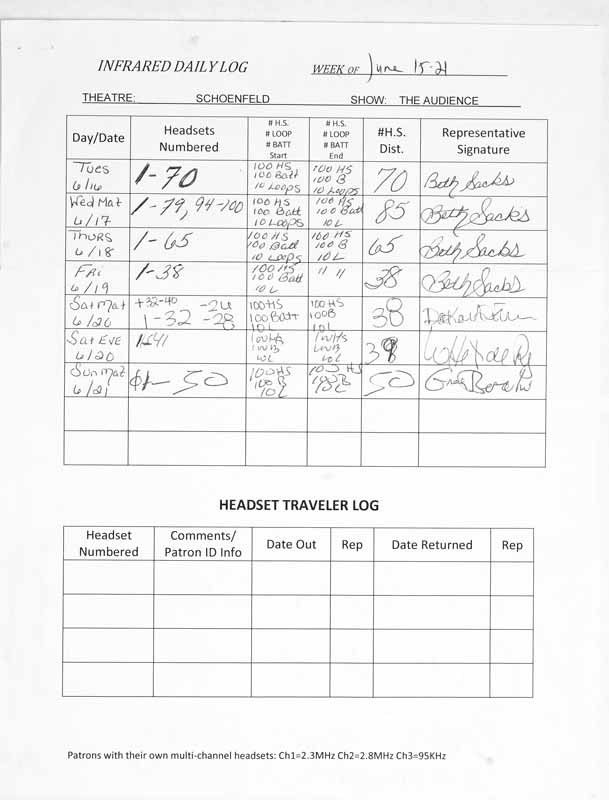 INFRARED DAILY LOG WEEK OF June 15-21
THEATRE: SCHOENFELD SHOW: THE AUDIENCE
Day/Date Headsets Numbered # H.S. # LOOP # BATT Start # H.S. # LOOP # BATT End #H.S. Dist. Representative Signature
Tues 6/16 1-70 100 HS 100 Batt 10 Loops 100 HS 100 B 10 Loops 70 Beth Sacks
Wed Mat 6/17 1-79, 94-100 100 HS 100 Batt 10 Loops 100 HS 100 Batt 10 L 85 Beth Sacks
Thurs 6/18 1-65 100 HS 100 Batt 10 Loops 100 HS 100 B 10 L 65 Beth Sacks
Fri 6/19 1-38 100 HS 100 Batt 10 L " " 38 Beth Sacks
Sat Mat 6/20 +32-40 1-32 -28 100 HS 100 Batt 10 L 100 HS 100B 10L 38
Sat Eve 6/20 1-41 100 HS 100B 10L 100 HS 100B 10L
Sun Mat 6/21 1- 50 100 HS 100 B 10 L 100 HS 100B 10L 50
HEADSET TRAVELER LOG
Headset Numbered Comments/ Patron ID Info Date Out Rep Date Returned Rep
Patrons with their own multi-channel headsets: Ch1=2.3MHz Ch2=2.8MHz Ch3=95KHz